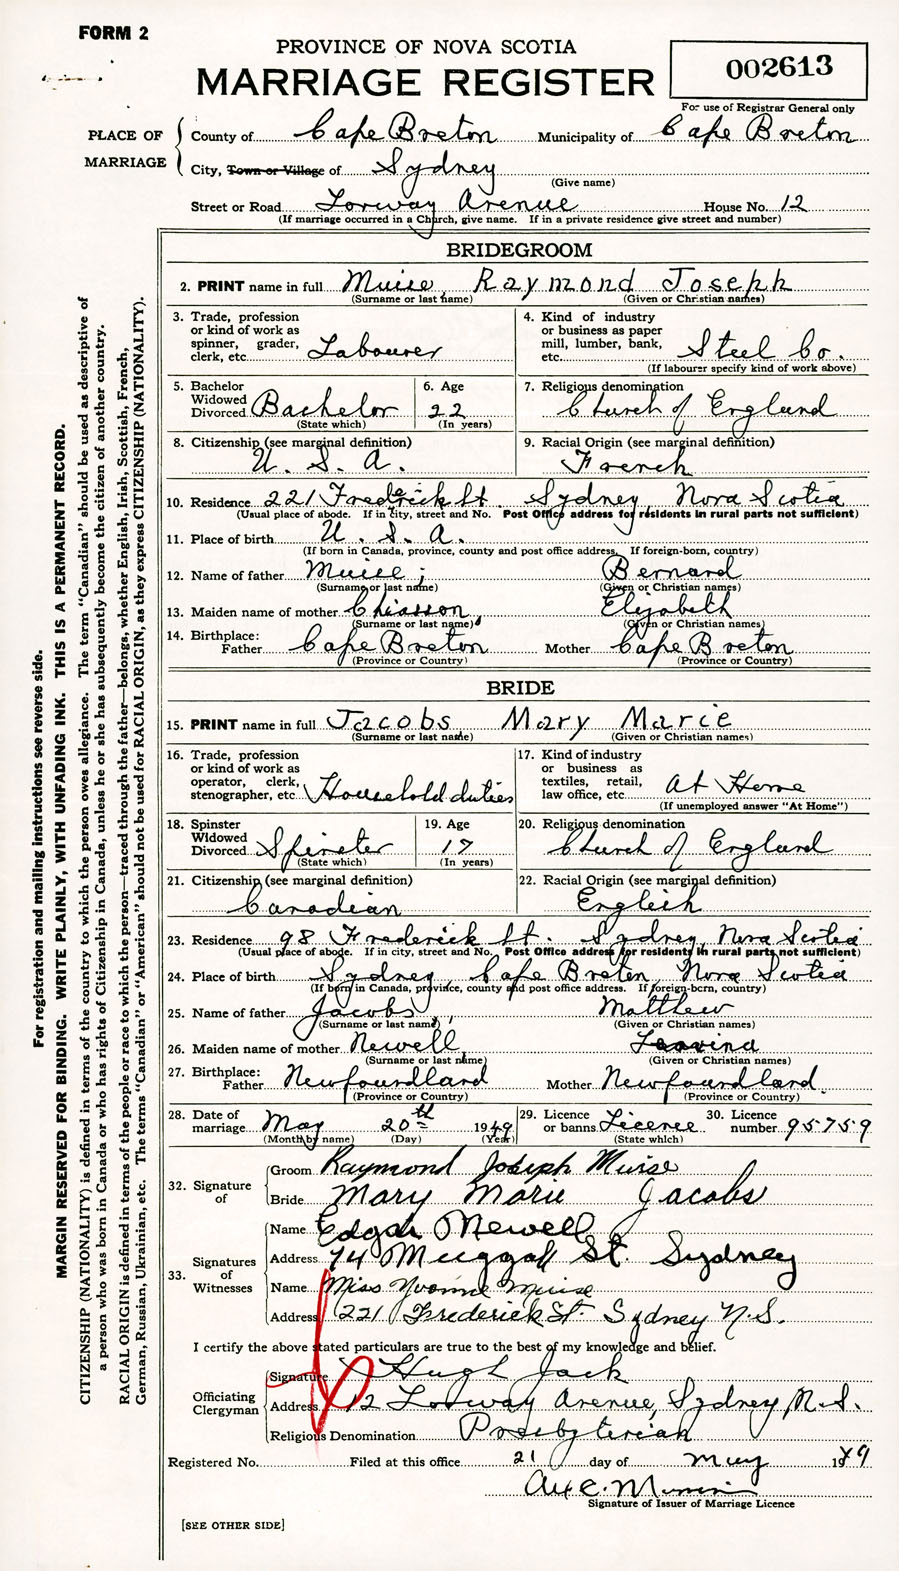 FORM 2
PROVINCE OF NOVA SCOTIA
MARRIAGE REGISTER
002613
For use of Registrar General only
PLACE OF MARRIAGE
County of Cape Breton Municipality of Cape Breton
City, Town or Village of Sydney
(Give name)
Street or Road Lorway Avenue House No. 12
(If marriage occurred in a Church, give name. If in a private residence give street and number)
BRIDEGROOM
2. PRINT name in full Muise, Raymond Joseph
(Surname or last name) (Given or Christian names)
3. Trade, profession or kind of work as spinner, grader, clerk, etc. Labourer
4. Kind of industry or business as paper mill, lumber, bank, etc. Steel Co.
(If labourer specify kind of work above)
5. Bachelor Widowed Divorced Bachelor
(State which)
6. Age 22
(In years)
7. Religious denomination Church of England
8. Citizenship (see marginal definition) U. S. A.
9. Racial Origin (see marginal definition) French
10. Residence 221 Frederick St. Sydney Nova Scotia
(Usual place of abode. If in city, street and No. Post Office address for residents in rural parts not sufficient)
11. Place of birth U. S. A.
(If born in Canada, province, county and post office address. If foreign-born, country)
12. Name of father Muise, Bernard
(Surname or last name) (Given or Christian names)
13. Maiden name of mother Chiasson Elizabeth
(Surname or last name) (Given or Christian names)
14. Birthplace: Father Cape Breton Mother Cape Breton
(Province or Country) (Province or Country)
BRIDE
15. PRINT name in full Jacobs Mary Marie
(Surname or last name) (Given or Christian names)
16. Trade, profession or kind of work as operator, clerk, stenographer, etc. Household duties
17. Kind of industry or business as textiles, retail, law office, etc. At Home
(If unemployed answer "At Home")
18. Spinster Widowed Divorced Spinster
(State which)
19. Age 17
(In years)
20. Religious denomination Church of England
21. Citizenship (see marginal definition) Canadian
22. Racial Origin (see marginal definition) English
23. Residence 98 Frederick St. Sydney, Nova Scotia
(Usual place of abode. If in city, street and No. Post Office address for residents in rural parts not sufficient)
24. Place of birth Sydney Cape Breton Nova Scotia
(If born in Canada, province, county and post office address. If foreign-born, country)
25. Name of father Jacobs, Matthew
(Surname or last name) (Given or Christian names)
26. Maiden name of mother Newell
(Surname or last name) (Given or Christian names)
27. Birthplace: Father Newfoundland Mother Newfoundland
(Province or Country) (Province or Country)
28. Date of marriage May 20th 1949
(Month by name) (Day) (Year)
29. Licence or banns Licence
(State which)
30. Licence number 95759
32. Signature of
Groom Raymond Joseph Muise
Bride Mary Marie Jacobs
33. Signatures of Witnesses
Name Edgar Newell
Address 74 Muggah St. Sydney
Name Miss Yvonne Muise
Address 221 Frederick St. Sydney N.S.
I certify the above stated particulars are true to the best of my knowledge and belief.
Officiating Clergyman
Signature Hugh Jack
Address 12 Lorway Avenue, Sydney, N.S.
Religious Denomination Presbyterian
Registered No. Filed at this office 21 day of May 1949
Signature of Issuer of Marriage Licence
[SEE OTHER SIDE]
For registration and mailing instructions see reverse side.
MARGIN RESERVED FOR BINDING. WRITE PLAINLY, WITH UNFADING INK. THIS IS A PERMANENT RECORD.
CITIZENSHIP (NATIONALITY) is defined in terms of the country to which the person owes allegiance. The term "Canadian" should be used as descriptive of
a person who was born in Canada or who has rights of Citizenship in Canada, unless he or she has subsequently become the citizen of another country.
RACIAL ORIGIN is defined in terms of the people or race to which the person—traced through the father—belongs, whether English, Irish, Scottish, French,
German, Russian, Ukrainian, etc. The terms "Canadian" or "American" should not be used for RACIAL ORIGIN, as they express CITIZENSHIP (NATIONALITY).